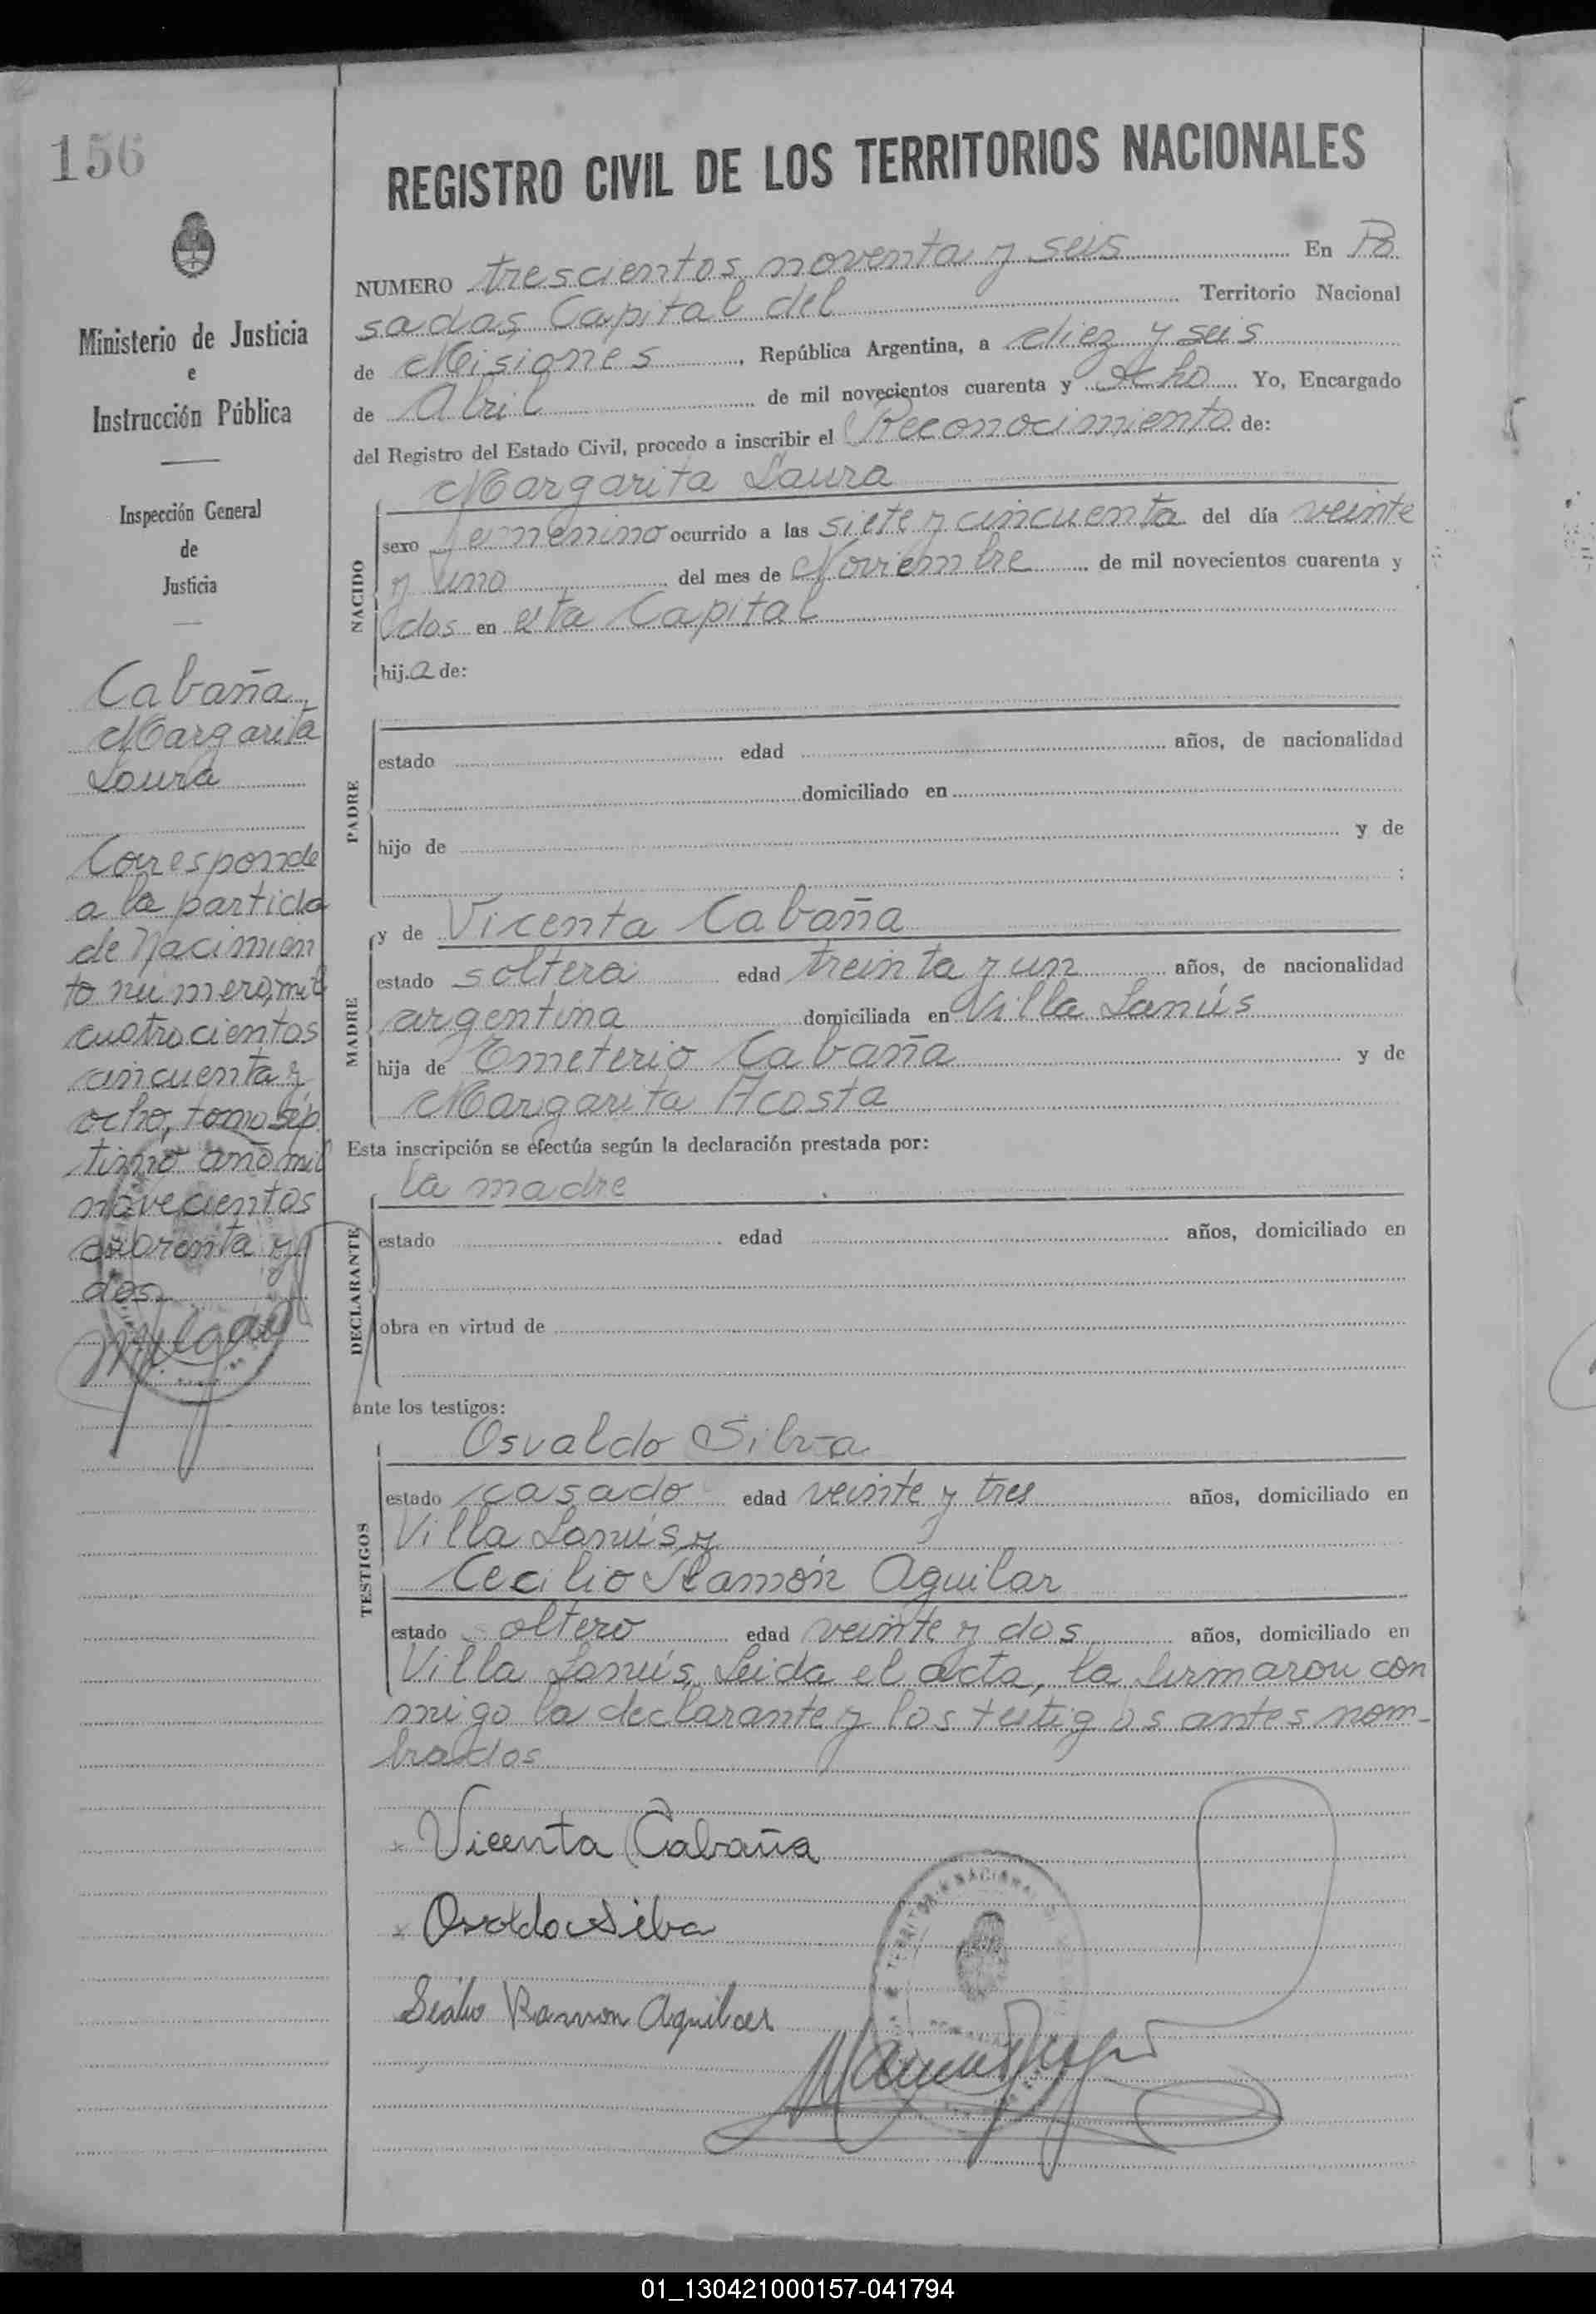 156
Ministerio de Justicia
e
Instrucción Pública
Inspección General
de
Justicia
Cabaña
Margarita
Laura
Corresponde
a la partida
de Nacimien
to número, mil
cuatrocientos
cincuenta y
ocho, tomo sép
timo año mil
novecientos
cuarenta y
dos.
REGISTRO CIVIL DE LOS TERRITORIOS NACIONALES
NUMERO trescientos noventa y seis En Po
sadas Capital del Territorio Nacional
de Misiones, República Argentina, a diez y seis
de Abril de mil novecientos cuarenta y Ocho Yo, Encargado
del Registro del Estado Civil, procedo a inscribir el Reconocimiento de:
Margarita Laura
NACIDO
sexo femenino ocurrido a las siete y cincuenta del día veinte
y uno del mes de Noviembre de mil novecientos cuarenta y
dos en esta Capital
hija de:
PADRE
estado edad años, de nacionalidad
domiciliado en
hijo de y de
;
MADRE
y de Vicenta Cabaña
estado soltera edad treinta y un años, de nacionalidad
argentina domiciliada en Villa Lanús
hija de Emeterio Cabaña y de
Margarita Acosta
Esta inscripción se efectúa según la declaración prestada por:
la madre
DECLARANTE
estado edad años, domiciliado en
obra en virtud de
ante los testigos:
Osvaldo Silva
TESTIGOS
estado casado edad veinte y tres años, domiciliado en
Villa Lanús y
Cecilio Ramón Aguilar
estado soltero edad veinte y dos años, domiciliado en
Villa Lanús. Leida el acta, la firmaron con
migo la declarante y los testigos antes nom-
brados
x Vicenta Cabaña
x Osvaldo Silva
Ramon Aguilar
01_130421000157-041794